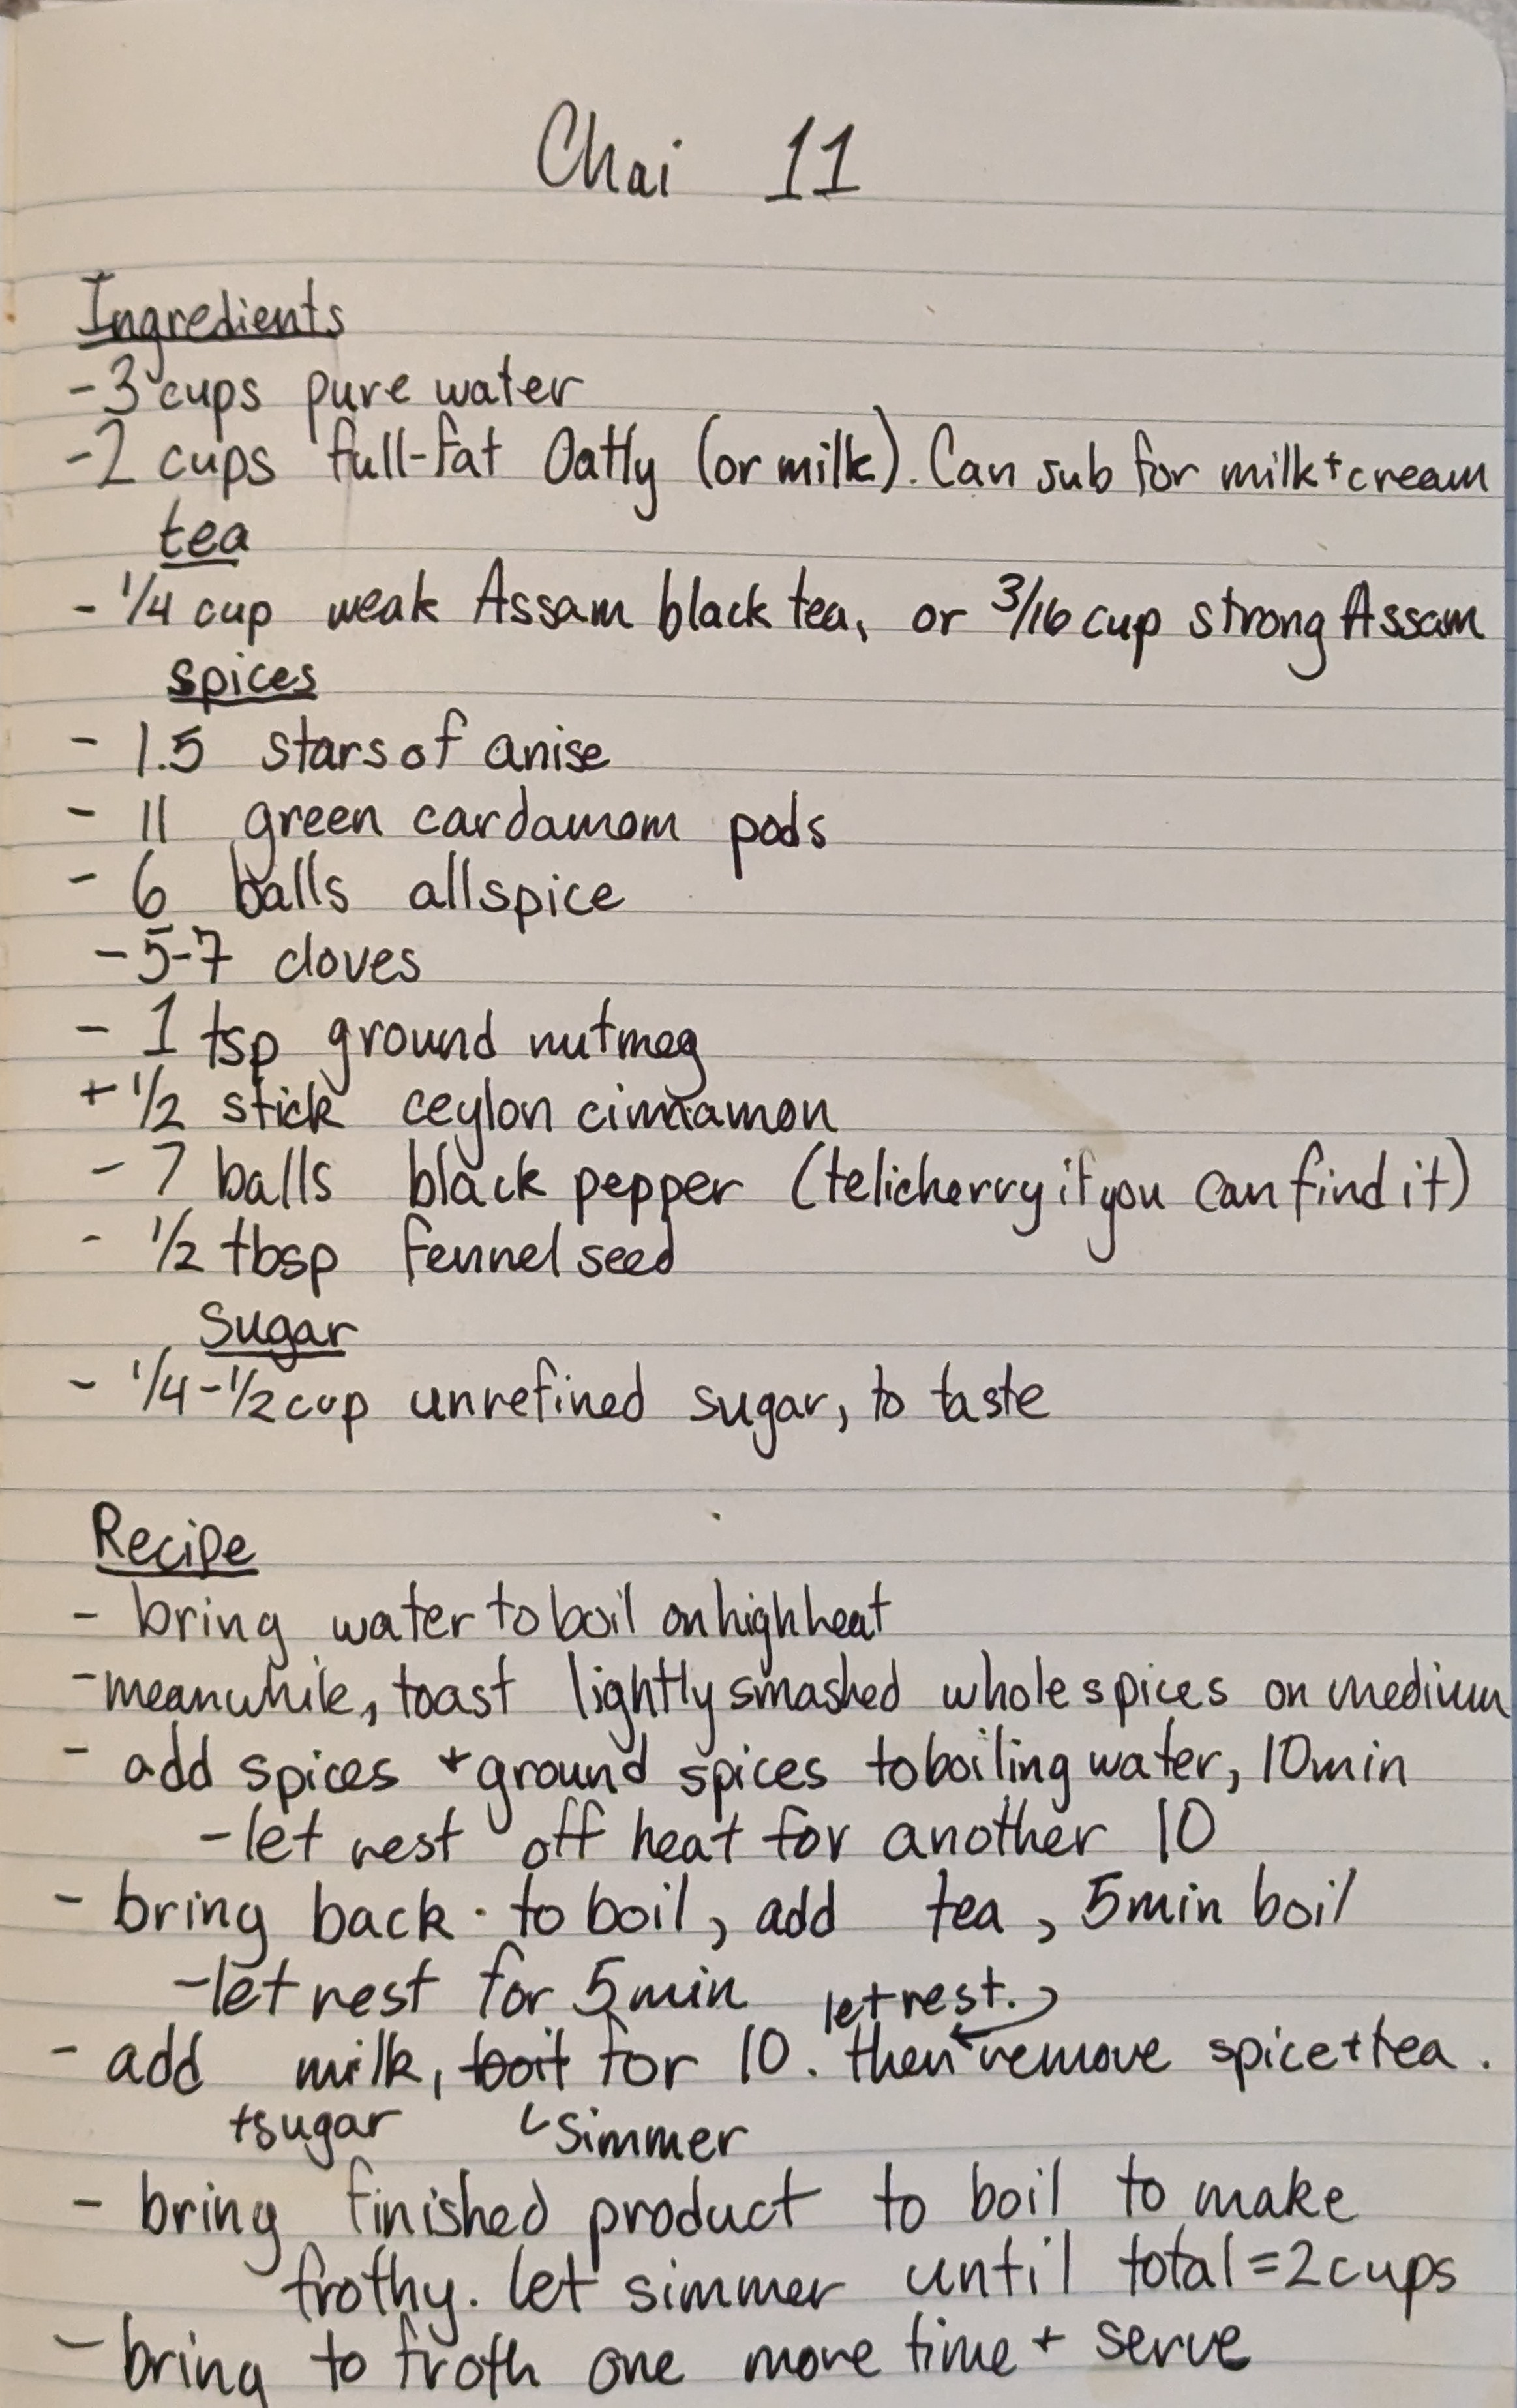 Chai 11
Ingredients
- 3 cups pure water
- 2 cups full-fat Oatly (or milk). Can sub for milk+cream
tea
- 1/4 cup weak Assam black tea, or 3/16 cup strong Assam
spices
- 1.5 stars of anise
- 11 green cardamom pods
- 6 balls allspice
- 5-7 cloves
- 1 tsp ground nutmeg
+ 1/2 stick ceylon cinnamon
- 7 balls black pepper (telicherry if you can find it)
- 1/2 tbsp fennel seed
Sugar
- 1/4-1/2 cup unrefined sugar, to taste
Recipe
- bring water to boil on high heat
- meanwhile, toast lightly smashed whole spices on medium
- add spices + ground spices to boiling water, 10min
- let rest off heat for another 10
- bring back to boil, add tea, 5min boil
- let rest for 5min let rest.
- add milk, boil for 10. then remove spice+tea.
+sugar simmer
- bring finished product to boil to make
frothy. let simmer until total=2cups
- bring to froth one more time + serve